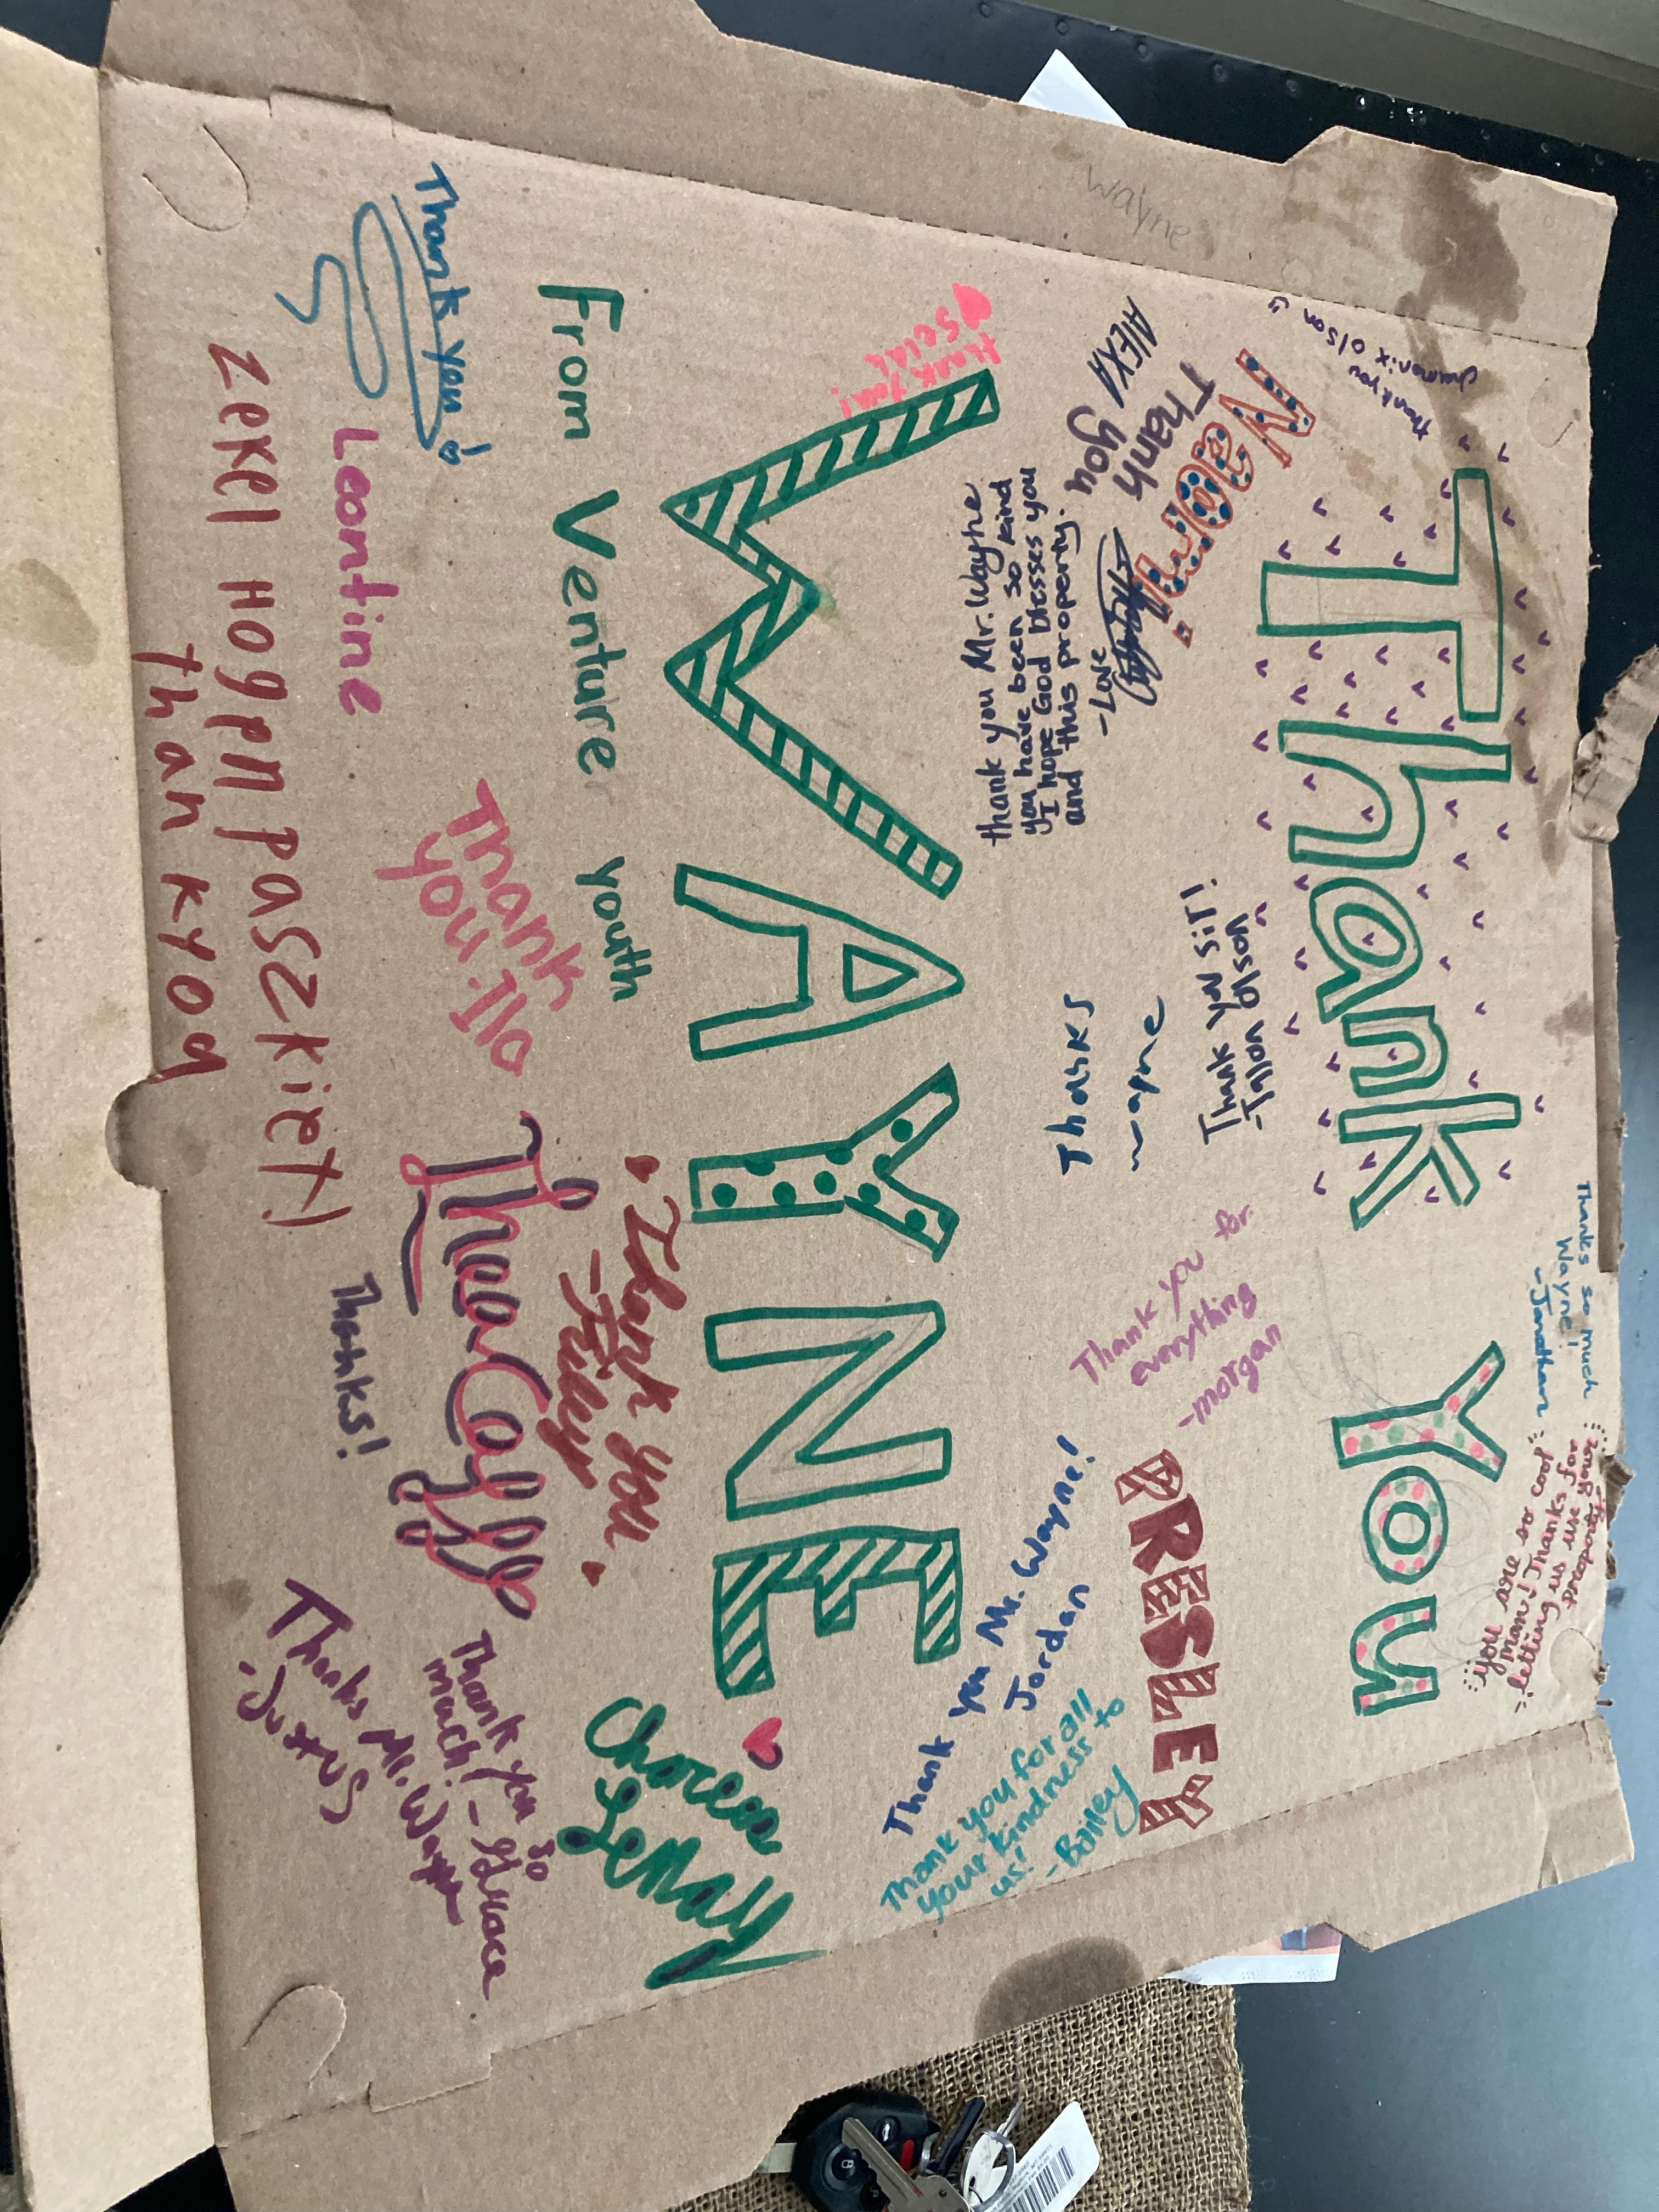 Thank You
Thanks so much
Wayne!
-Jonathan
you are so cool
man! Thanks for
letting us use
your property
thank you
olson
Naomi
ALEXA
Thank
you
wayne
Thank You SiR!
-Tallon Olson
Thank you for
everything
-morgan
PRESLEY
thank you Mr. Wayne
you have been so kind
I hope God blesses you
and this property.
-Love
Thanks
wayne
Thank you Mr. Wayne!
Jordan
Thank you for all
your kindness to
us! -Bailey
thank you!
WAYNE
From Venture youth
Thank you.
-Filey
Charees
LeMay
Thank you
Leontine
Thank
you
Thea Coyle
Thank you so
much! -Grace
Thanks!
Thanks Mr. Wayne
-Justus
Zekel Hogen Paszkiet!
than kyou